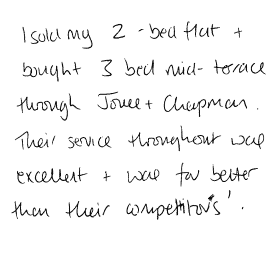 I sold my 2-bed flat +
bought 3 bed mid-terrace
through Jones + Chapman.
Their service throughout was
excellent + was far better
than their competitors'.